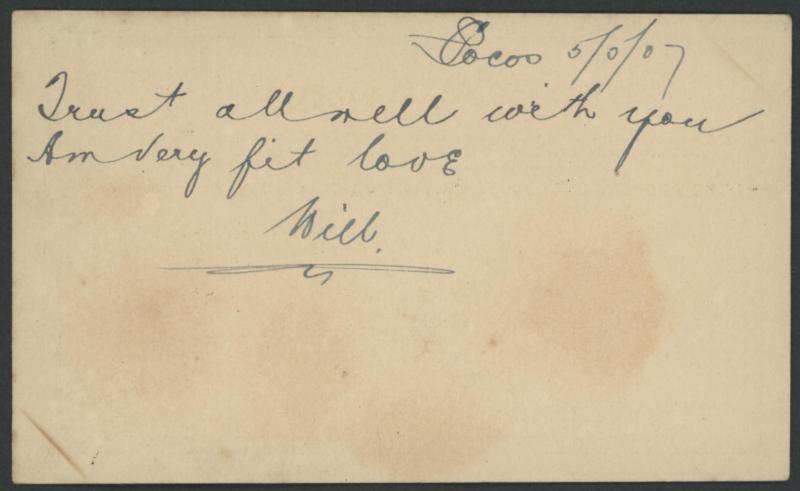 Cocos 5/5/07
Trust all well with you
Am Very fit love
Will.